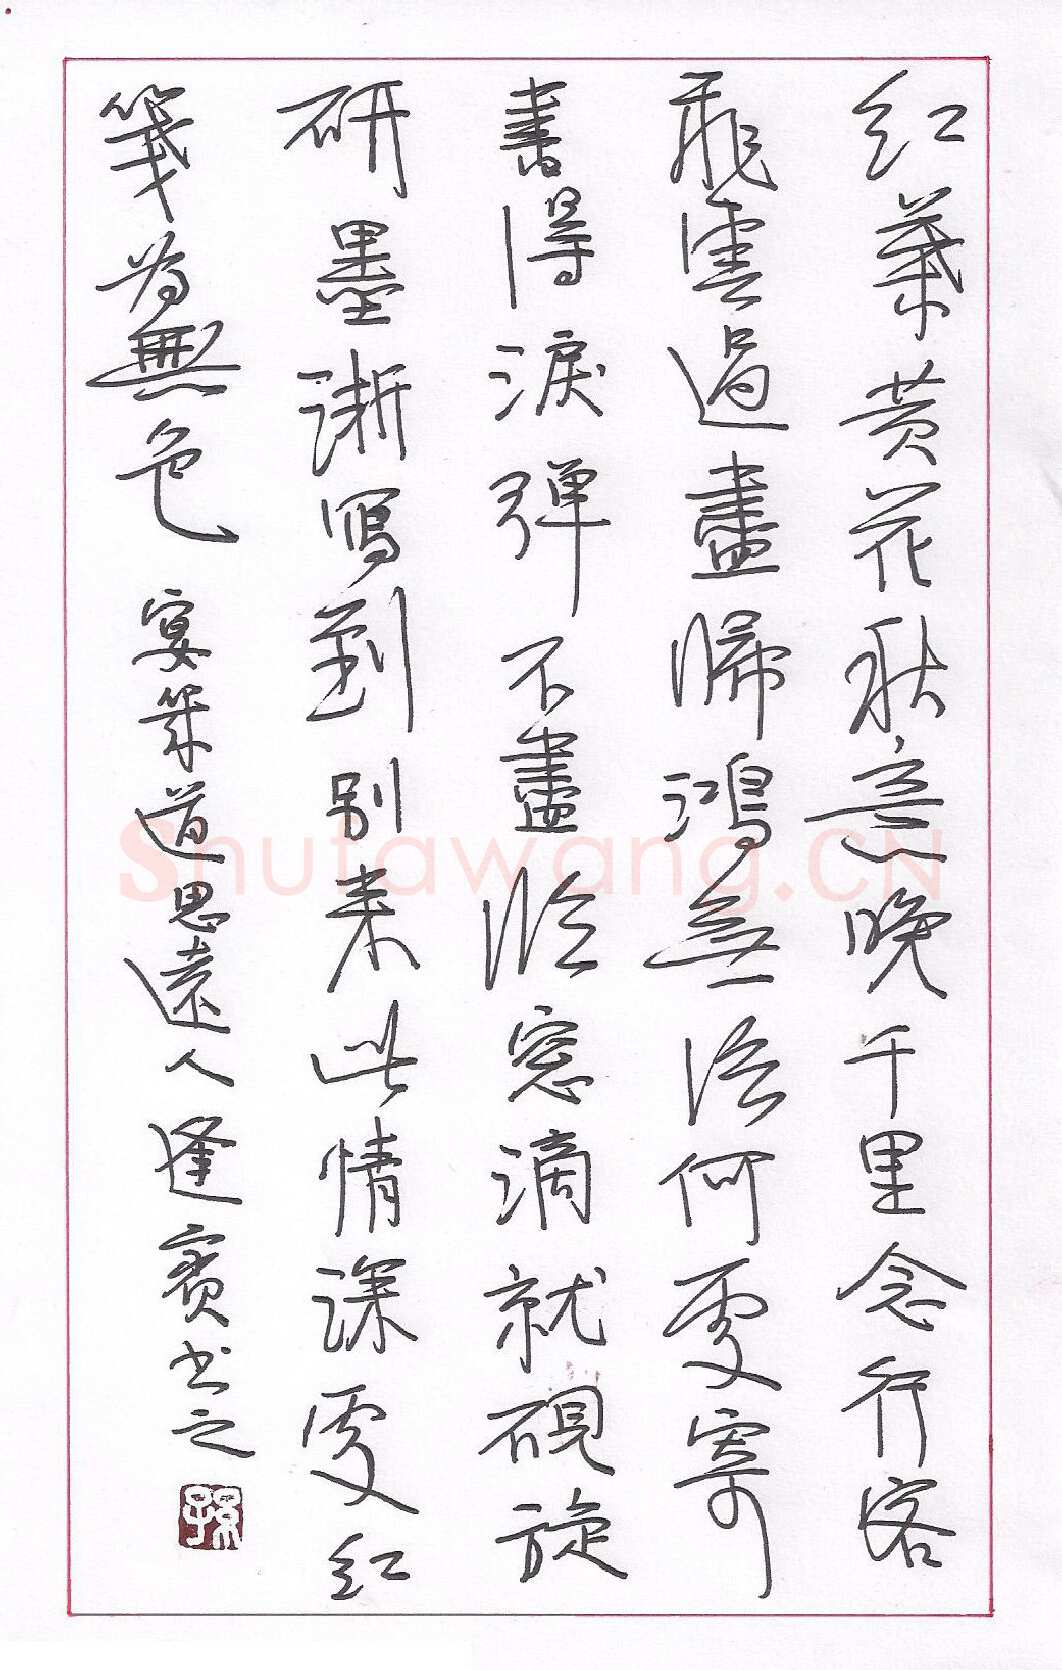 紅葉黄花秋意晚千里念行客
飛雲過盡歸鴻無信何處寄
書得淚弹不盡臨窓滴就硯旋
研墨漸寫到别来此情深處紅
箋為無色 宴幾道思遠人 逢賓书之
孫
Shufawang.CN